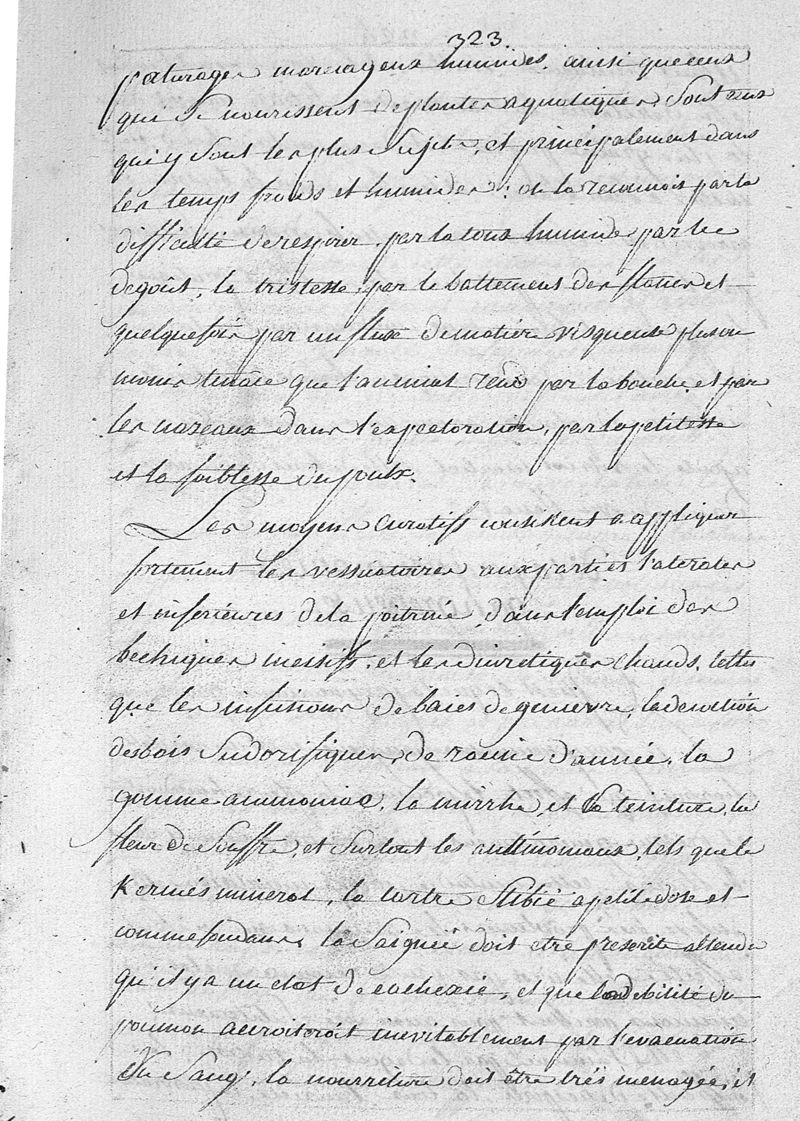 323.
paturages marecageux humides, ainsi que ceux
qui se nourissent de plantes aquatiques, sont ceux
qui y sont les plus sujets, et principalement dans
les temps froids et humides; on la reconnois par la
difficulté de respirer, par la toux humide par le
degoût, la tristesse, par le battement des flancs et
quelquefois par un flux de matiere visqueuse plus ou
moins tenace que l'animal rend par la bouche, et par
les nazeaux dans l'expectoration, par la petitesse
et la foiblesse du poulx.
Les moyens curatifs consistent a appliquer
fortement les vessicatoires aux parties laterales
et inferieures de la poitrine, dans l'emploi des
bechiques incisifs, et les diuretiques chauds, telles
que les infusions de baies de genievre, la decoction
des bois sudorifiques, de racine d'aunée, la
gomme ammoniac, la mirrhe, et la teinture, la
fleur de souffre, et surtout les antimoniaux, tels que le
Kermés mineral, la tartre stibié a petite dose et
comme fondans, la saignée doit etre prescrite attendu
qu'il y a un etat de cachexie, et que la debilité du
poumon accroiteroit inevitablement par l'evacuation
du sang, la nourriture doit être trés menagée, et